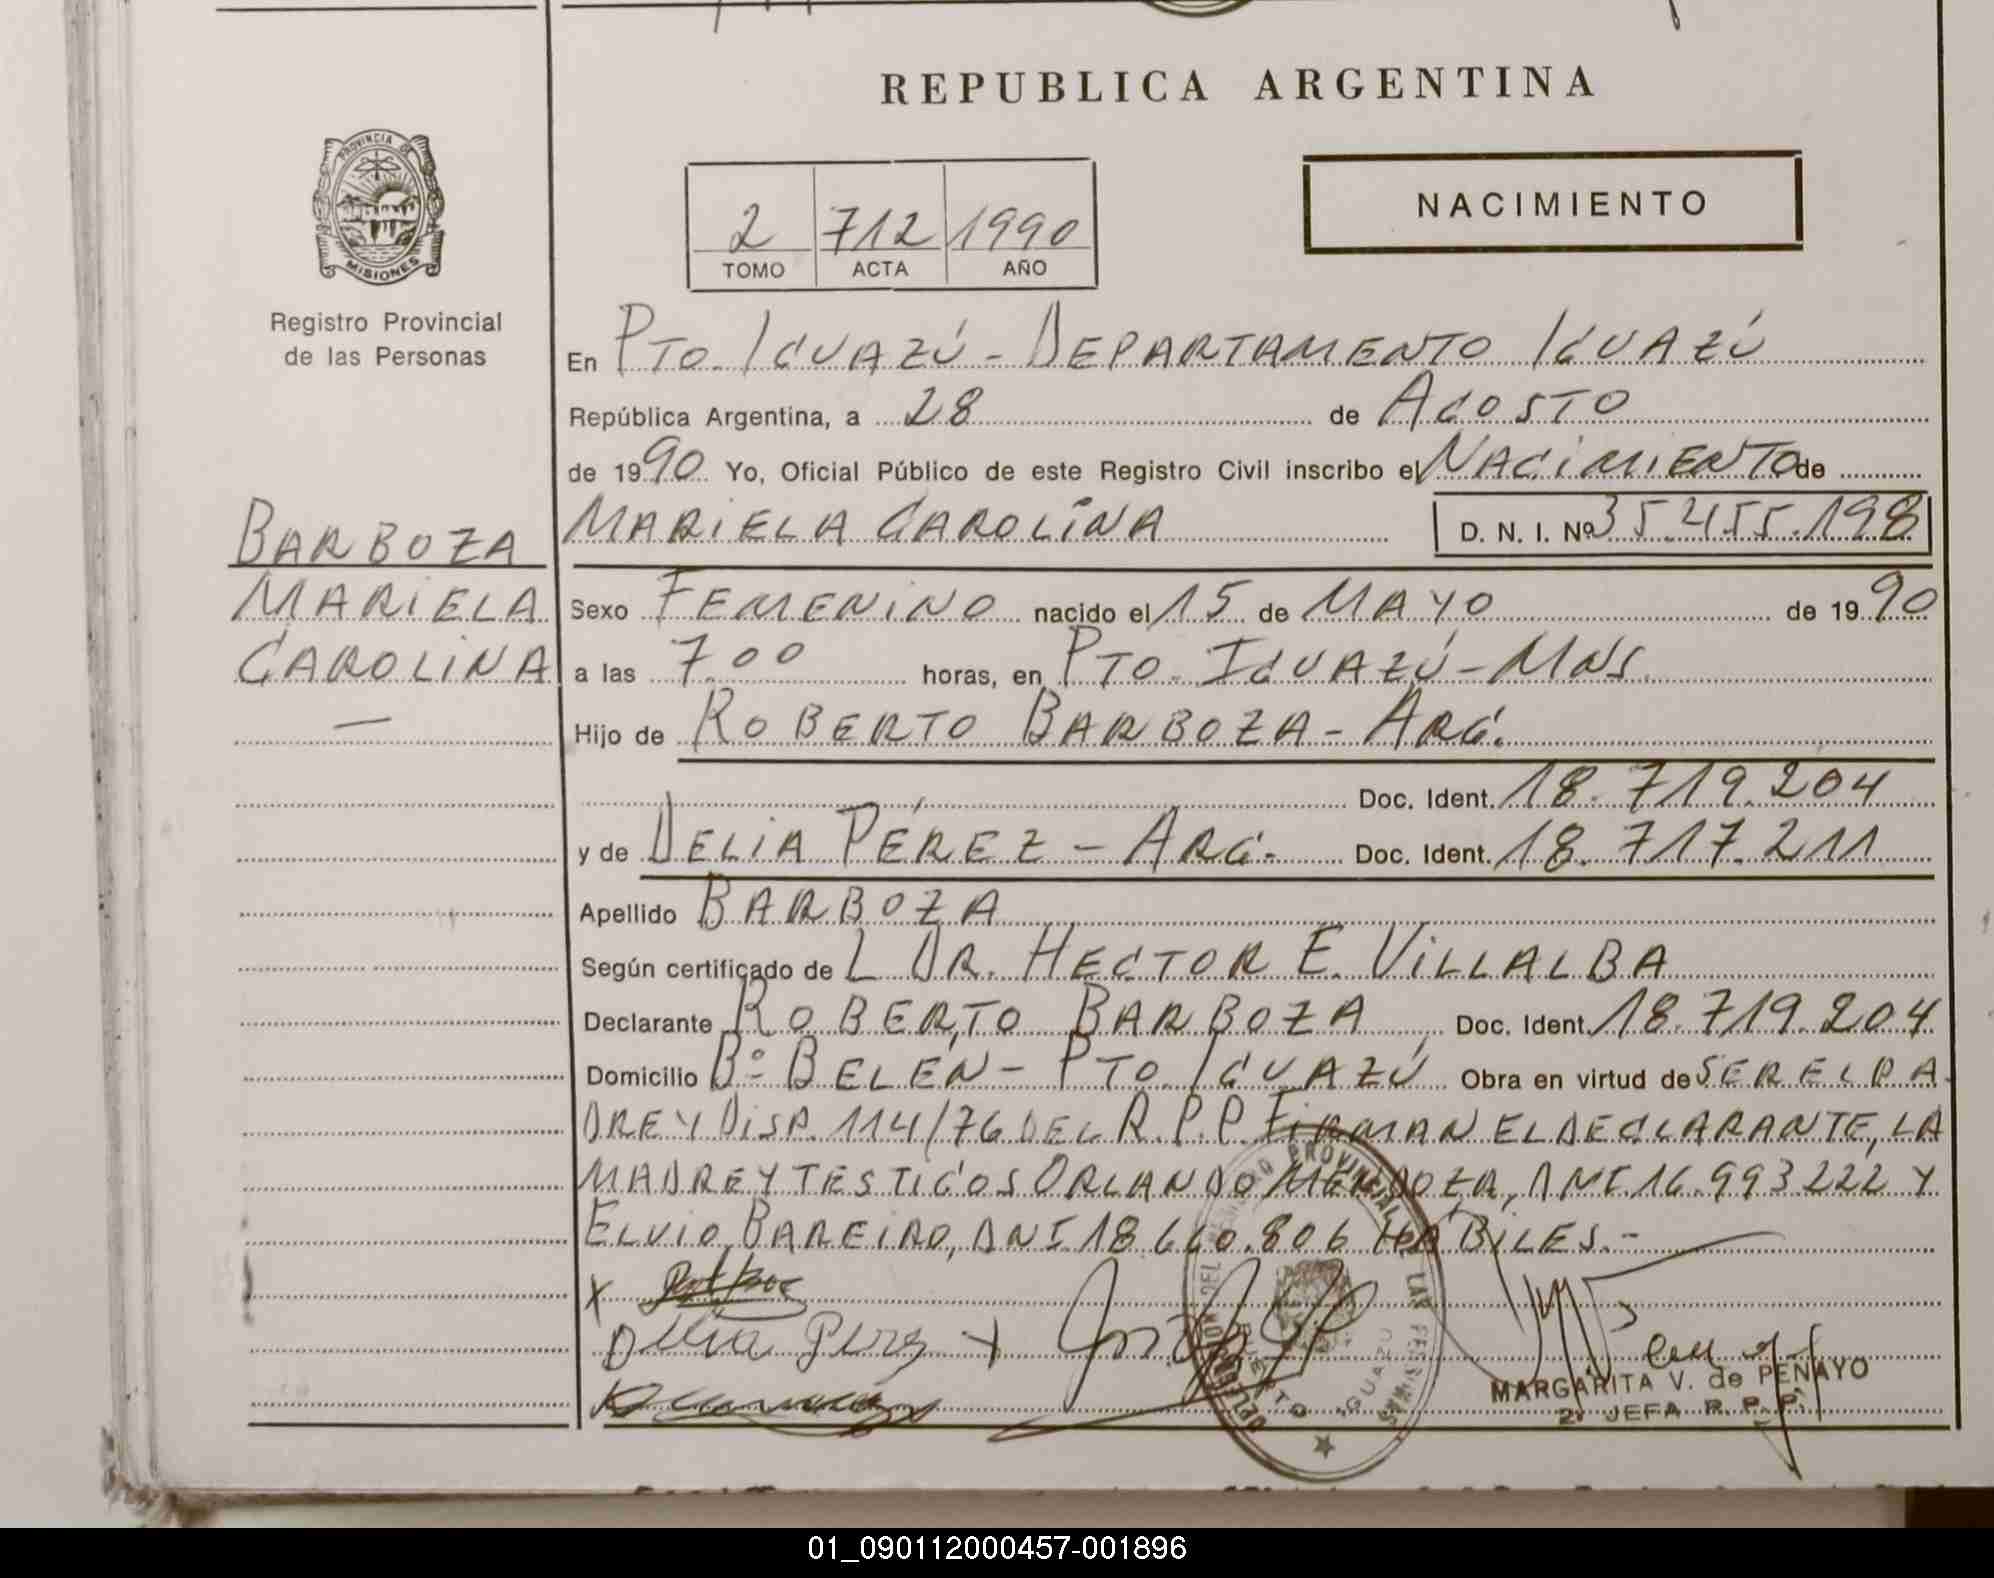 REPUBLICA ARGENTINA
PROVINCIA DE
MISIONES
Registro Provincial
de las Personas
2 712 1990
TOMO ACTA AÑO
NACIMIENTO
En PTO. IGUAZÚ - DEPARTAMENTO IGUAZÚ
República Argentina, a 28 de AGOSTO
de 1990 Yo, Oficial Público de este Registro Civil inscribo el NACIMIENTO de
MARIELA CAROLINA D. N. I. Nº 35.455.198
BARBOZA
MARIELA
CAROLINA
—
Sexo FEMENINO nacido el 15 de MAYO de 1990
a las 7.00 horas, en PTO. IGUAZÚ - MNS.
Hijo de ROBERTO BARBOZA - ARG.
Doc. Ident. 18.719.204
y de DELIA PÉREZ - ARG. Doc. Ident. 18.717.211
Apellido BARBOZA
Según certificado de L DR. HECTOR E. VILLALBA
Declarante ROBERTO BARBOZA Doc. Ident. 18.719.204
Domicilio Bº BELÉN - PTO. IGUAZÚ Obra en virtud de SER EL PA
DRE Y DISP. 114/76 DEL R.P.P. FIRMAN EL DECLARANTE, LA
MADRE Y TESTIGOS ORLANDO MENDOZA, DNI 16.993.222 Y
ELVIO BAREIRO, DNI 18.660.806 HÁBILES.-
X
Delia Perez X
MARGARITA V. de PENAYO
2º JEFA R. P. P.
PROVINCIAL DE LAS PERSONAS
PUERTO IGUAZU
01_090112000457-001896